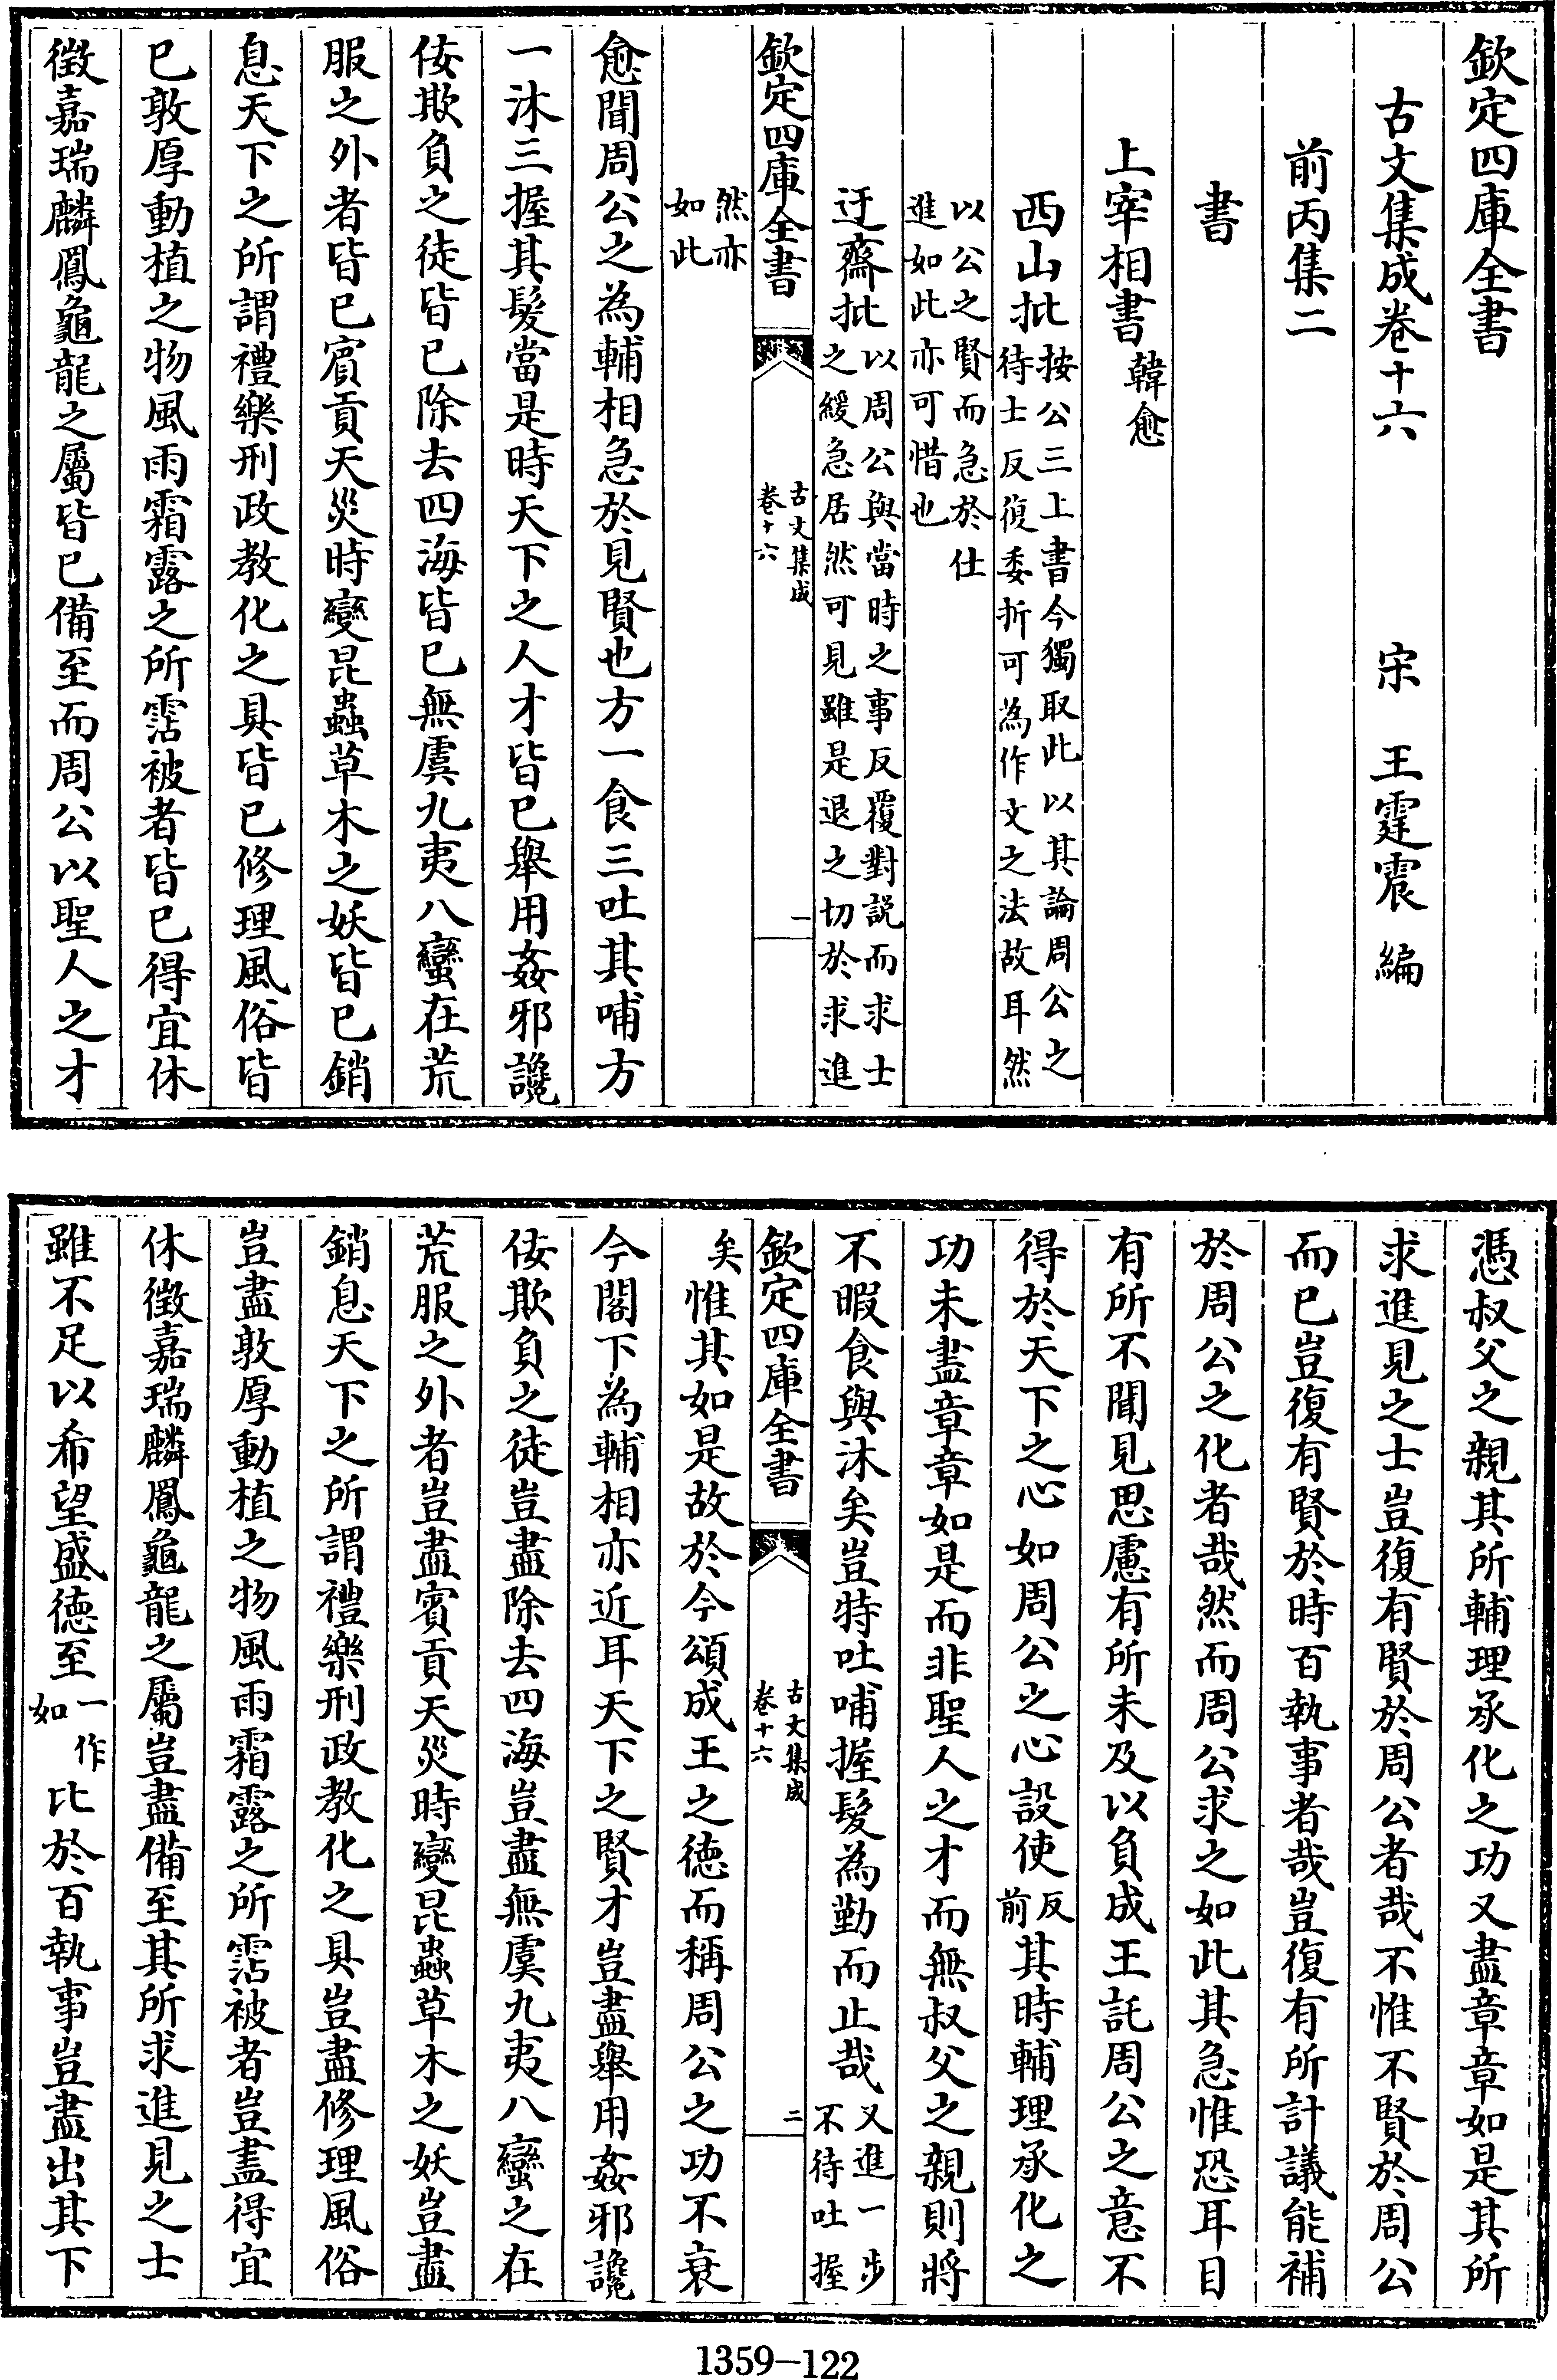 欽定四庫全書
古文集成卷十六　宋　王霆震　編
前丙集二
書
上宰相書韓愈
西山批按公三上書今獨取此以其論周公之
待士反復委折可為作文之法故耳然
以公之賢而急於仕
進如此亦可惜也
迂齋批以周公與當時之事反覆對説而求士
之緩急居然可見雖是退之切於求進
欽定四庫全書　古文集成
卷十六　一
然亦
如此
愈聞周公之為輔相急於見賢也方一食三吐其哺方
一沐三握其髮當是時天下之人才皆已舉用姦邪讒
佞欺負之徒皆已除去四海皆已無虞九夷八蠻在荒
服之外者皆已賓貢天災時變昆蟲草木之妖皆已銷
息天下之所謂禮樂刑政教化之具皆已修理風俗皆
已敦厚動植之物風雨霜露之所霑被者皆已得宜休
徴嘉瑞麟鳳龜龍之屬皆已備至而周公以聖人之才
憑叔父之親其所輔理承化之功又盡章章如是其所
求進見之士豈復有賢於周公者哉不惟不賢於周公
而已豈復有賢於時百執事者哉豈復有所計議能補
於周公之化者哉然而周公求之如此其急惟恐耳目
有所不聞見思慮有所未及以負成王託周公之意不
得於天下之心如周公之心設使反
前其時輔理承化之
功未盡章章如是而非聖人之才而無叔父之親則將
不暇食與沐矣豈特吐哺握髮為勤而止哉又進一步
不待吐握
欽定四庫全書　古文集成
卷十六　二
矣惟其如是故於今頌成王之徳而稱周公之功不衰
今閣下為輔相亦近耳天下之賢才豈盡舉用姦邪讒
佞欺負之徒豈盡除去四海豈盡無虞九夷八蠻之在
荒服之外者豈盡賓貢天災時變昆蟲草木之妖豈盡
銷息天下之所謂禮樂刑政教化之具豈盡修理風俗
豈盡敦厚動植之物風雨霜露之所霑被者豈盡得宜
休徴嘉瑞麟鳳龜龍之屬豈盡備至其所求進見之士
雖不足以希望盛徳至一作
如比於百執事豈盡出其下
1359-122